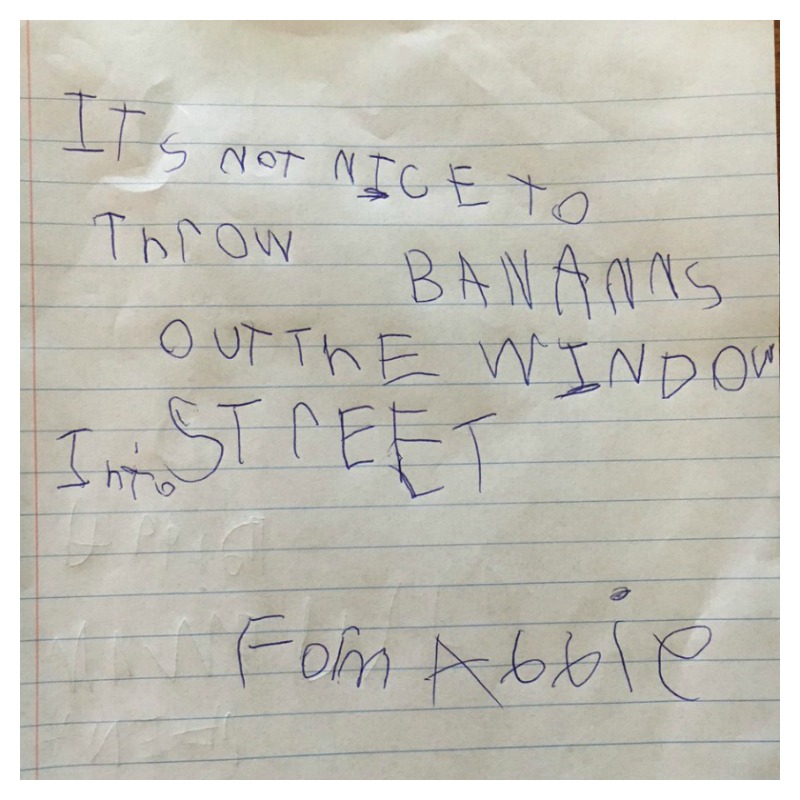 ITS NOT NICE TO
ThrOW BANANNS
OUT ThE WINDOW
Into STrEET
Fom Abbie